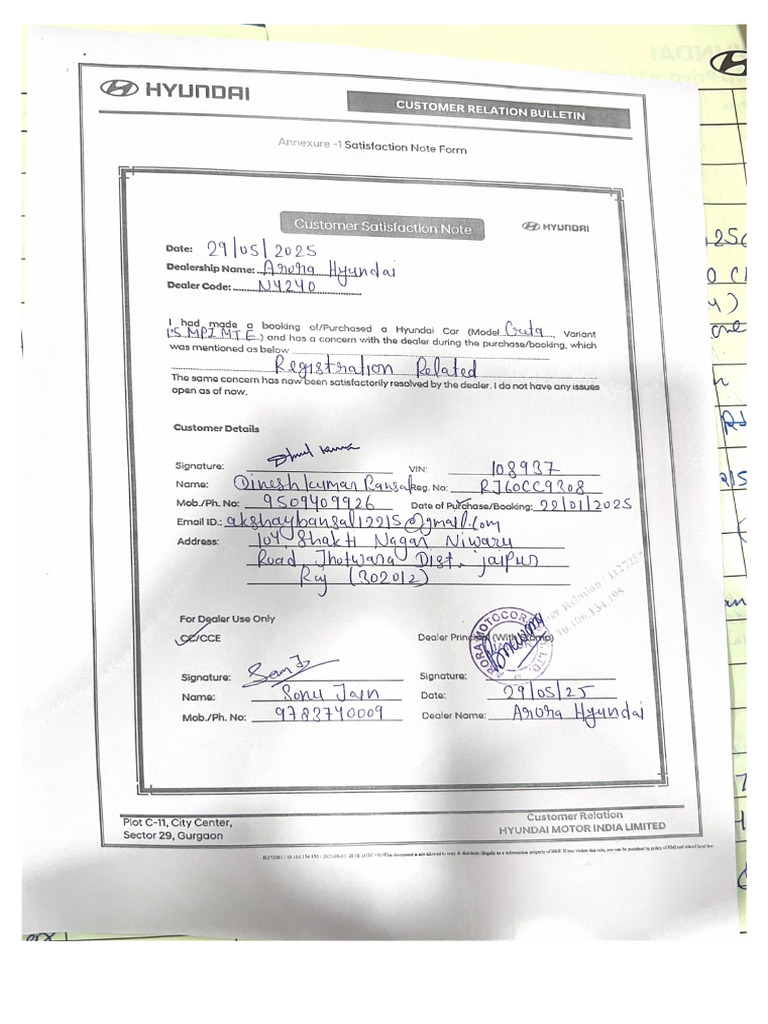 HYUNDAI
CUSTOMER RELATION BULLETIN
Annexure -1 Satisfaction Note Form
Customer Satisfaction Note
HYUNDAI
Date: 29/05/2025
Dealership Name: Arora Hyundai
Dealer Code: N4240
I had made a booking of/Purchased a Hyundai Car (Model Creta, Variant
1.5 MPI MT E) and has a concern with the dealer during the purchase/booking, which
was mentioned as below
Registration Related
The same concern has now been satisfactorily resolved by the dealer. I do not have any issues
open as of now.
Customer Details
Signature: VIN: 108937
Name: Dinesh Kumar Bansal Reg. No: RJ60CC9308
Mob./Ph. No: 9509409926 Date of Purchase/Booking: 22/01/2025
Email ID.: akshaybansal12215@gmail.com
Address: 104 Shakti Nagar Niwaru
Road, Jhotwara Dist. jaipur
Raj (302012)
For Dealer Use Only
CC/CCE Dealer Principal (With Stamp)
Signature: Signature:
Name: Sonu Jain Date: 29/05/25
Mob./Ph. No: 9783740009 Dealer Name: Arora Hyundai
Plot C-11, City Center,
Sector 29, Gurgaon
Customer Relation
HYUNDAI MOTOR INDIA LIMITED